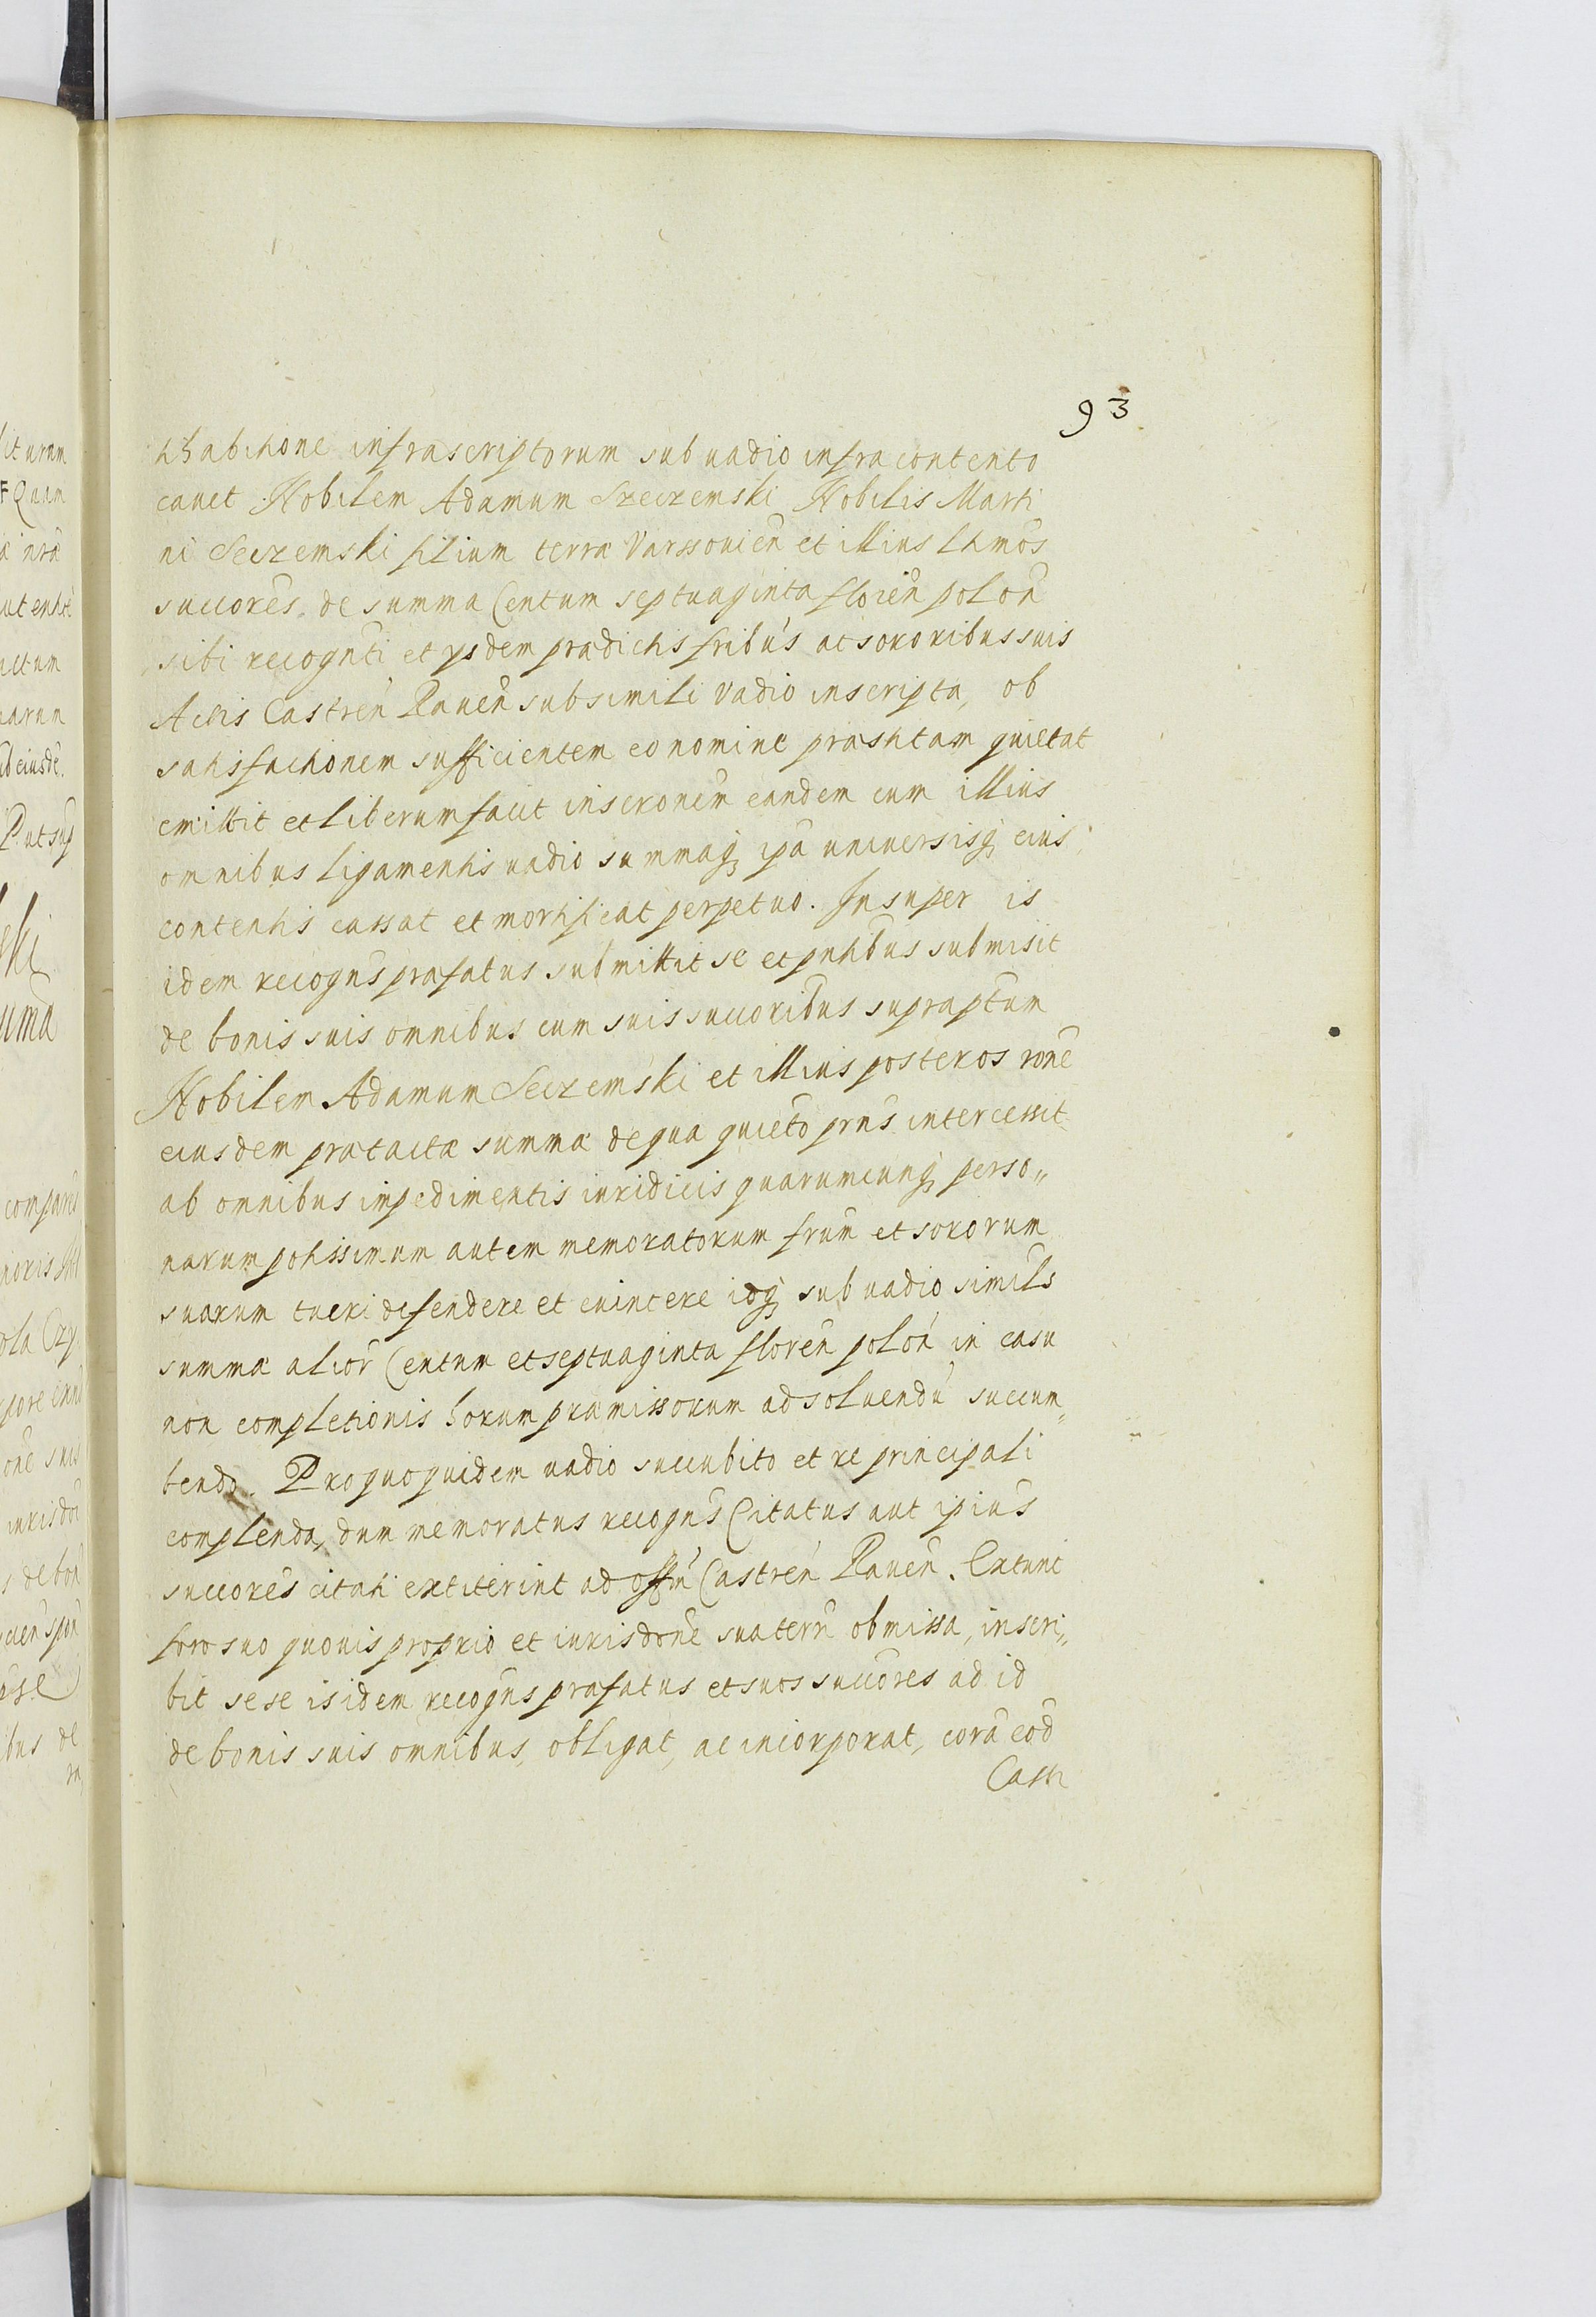 93
ratihabitione infrascriptorum sub vadio infra contento
cavet Nobilem Adamum Szeczemski Nobilis Marti
ni Seczemski filium terræ Varssouien̄ et illius Ltmōs
succorēs de summa Centum septuaginta floren̄ polon̄
sibi recogn̄ti et ysdem prædictis fribūs ac sororibus suis
Actis Castren̄ Rauen̄ sub simili vadio inscripta, ob
satisfactionem sufficientem eo nomine præstitam quietat
emittit et liberum facit inscronēm eandem cum illius
omnibus ligamentis vadio summaq, ipā universisq, eius
contentis cassat et mortificat perpetuo. Insuper is
idem recogn̄s præfatus submittit se et pn̄tibus submisit
de bonis suis omnibus cum suis succoribūs suprap̄tum
Nobilem Adamum Seczemski et illius posteros ronē
eiusdem prætactæ summæ de qua quietō prn̄s intercessit
ab omnibus impedimentis iuridicis quarumcunq, perso„
narum potissimum autem memoratorum frum̄ et sororum
suarum tueri defendere et evincere idq, sub vadio similis
summæ aliōr Centum et septuaginta floren̄ polon̄ in casu
non completionis horum præmissorum ad solvendū succum„
bendo. Pro quo quidem vadio succubito et re principali
complenda, dum memoratus recogn̄s Citatus aut ipiūs
succorēs citati extiterint ad offm̄ Castren̄ Rauen̄. Extunc
foro suo quovis proprio et iurisdonē sua terr̄ obmissa, inscri„
bit sese isidem recogn̄s præfatus et suos succōres ad id
de bonis suis omnibus, obligat, ac incorporat, corā eod̄
Castr